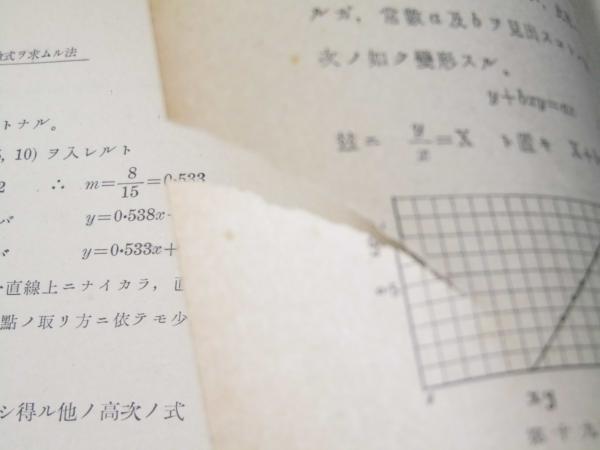 式ヲ求ムル法
トナル。
, 10) ヲ入レルト
2 ∴ m=8/15=0·533
バ y=0·538x
バ y=0·533x+
直線上ニナイカラ,
點ノ取リ方ニ依テモ少
シ得ル他ノ高次ノ式
ルガ, 常數a及bヲ見出スコト
次ノ如ク變形スル。
y+bxy=ax
y/x=X ト置キ X+b
xy